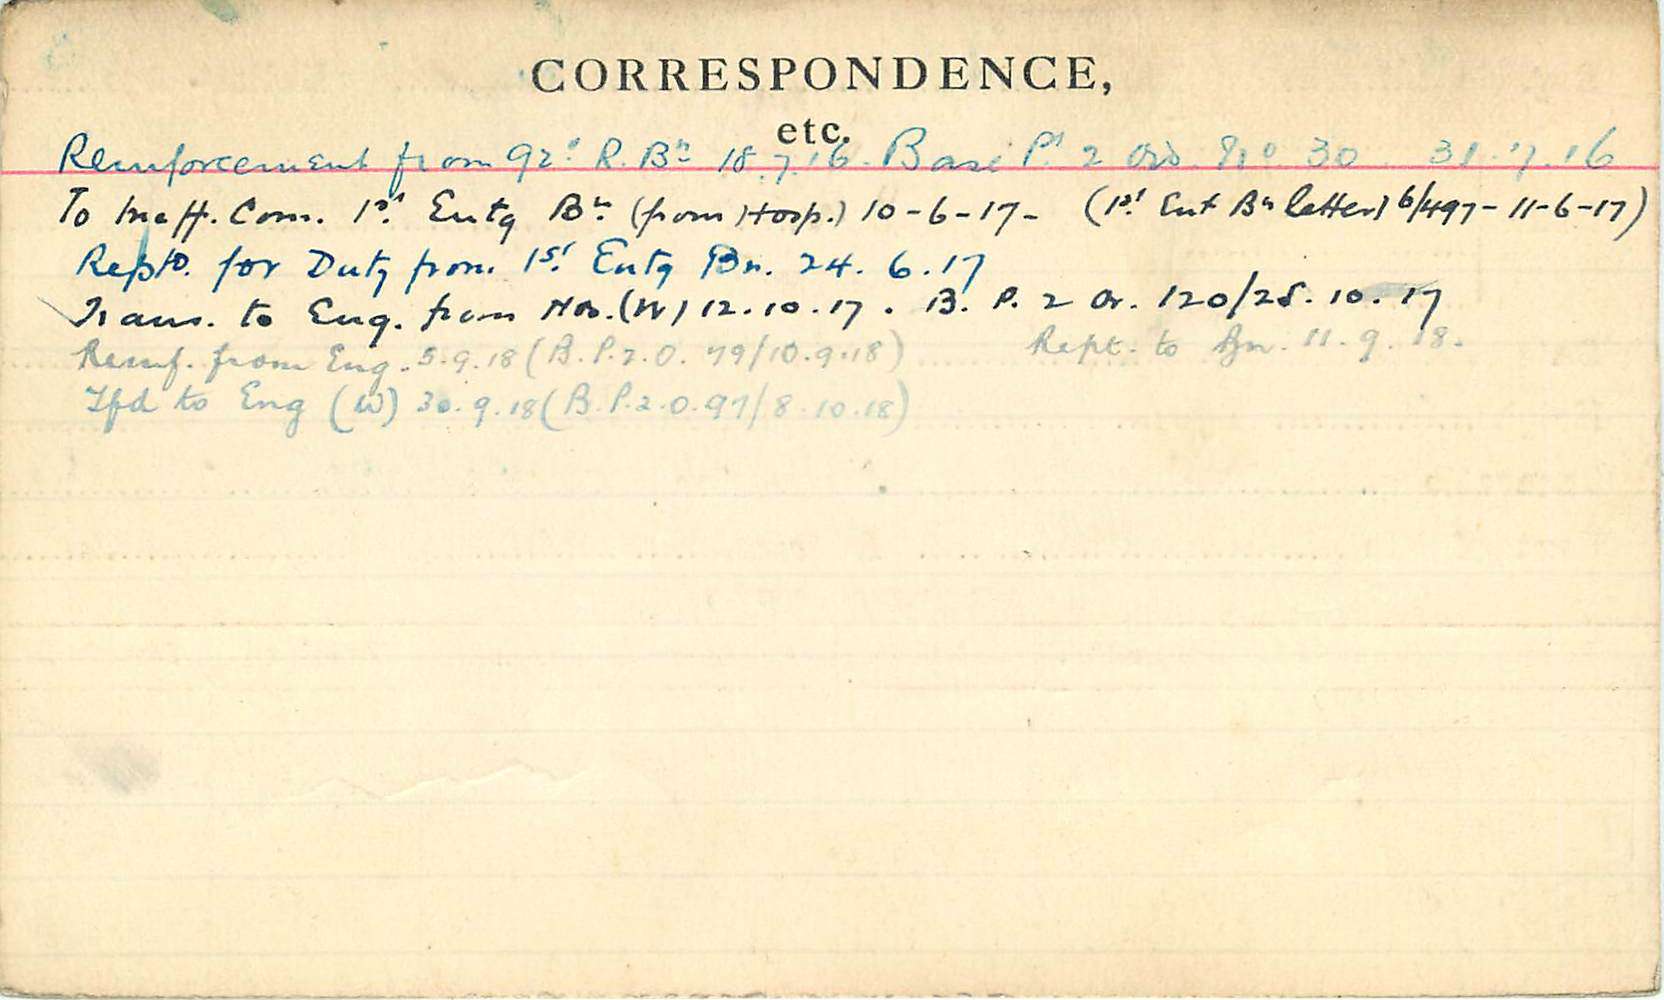 CORRESPONDENCE,
etc.
Reinforcement from 92d R. Bn 18.7.16. Base Pt 2 Ord. No 30. 31.7.16
To Ineff. Com. 1st Entg Bn (from Hosp.) 10-6-17- (1st Ent Bn letter 6/497-11-6-17)
Reptd. for Duty from 1st Entg Bn. 24.6.17
Trans. to Eng. from (W) 12.10.17. B. P. 2 Or. 120/25.10.17
Reinf. from Eng. 5.9.18 (B.P.2.O. 79/10.9.18) Rept. to Bn. 11.9.18.
Tfd to Eng (W) 30.9.18 (B.P.2.O. 97/8.10.18)